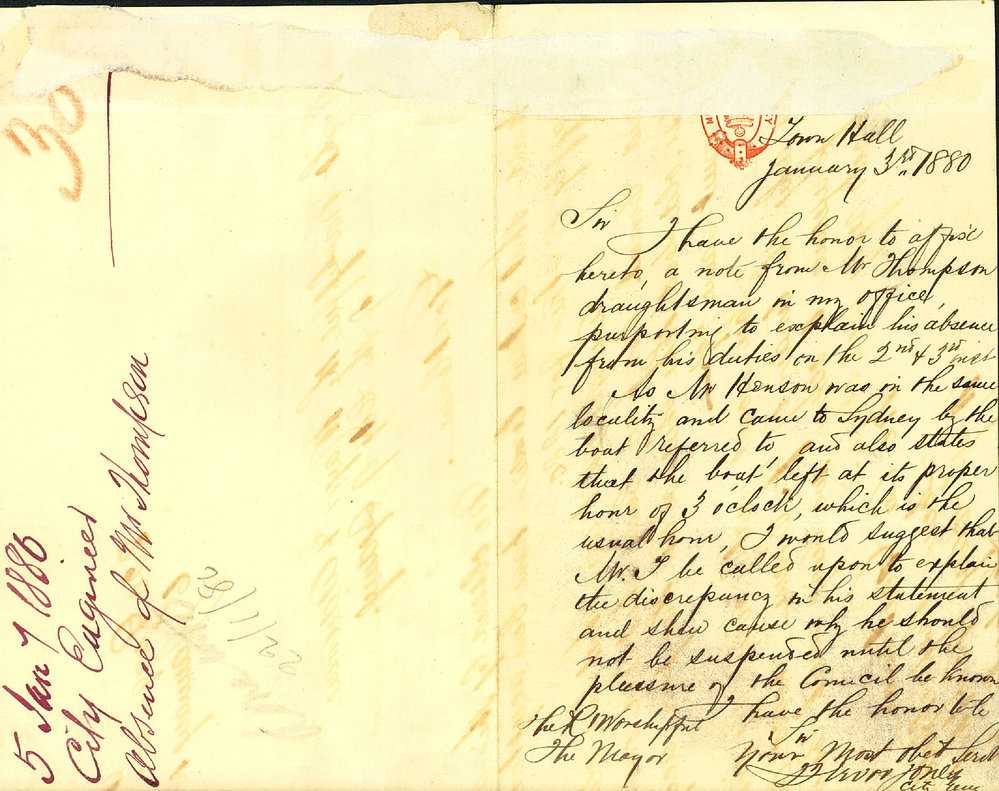 30
5 Jany 1880
City Engineer
Absence of Mr Thompson
22/1/80
Town Hall
January 3rd 1880
Sir
I have the honor to affix
hereto, a note from Mr Thompson
draughtsman in my office,
purporting to explain his absence
from his duties on the 2nd & 3rd inst
As Mr Henson was in the same
locality and came to Sydney by the
boat referred to, and also states
that the boat, left at its proper
hour of 3 o'clock, which is the
usual hour, I would suggest that
Mr. T be called upon to explain
the discrepancy in his statement
and show cause why he should
not be suspended until the
pleasure of the Council be known
I have the honor to be
Sir
Your Most obet Servt
Jones
City Engr
The Rt Worshipful
The Mayor